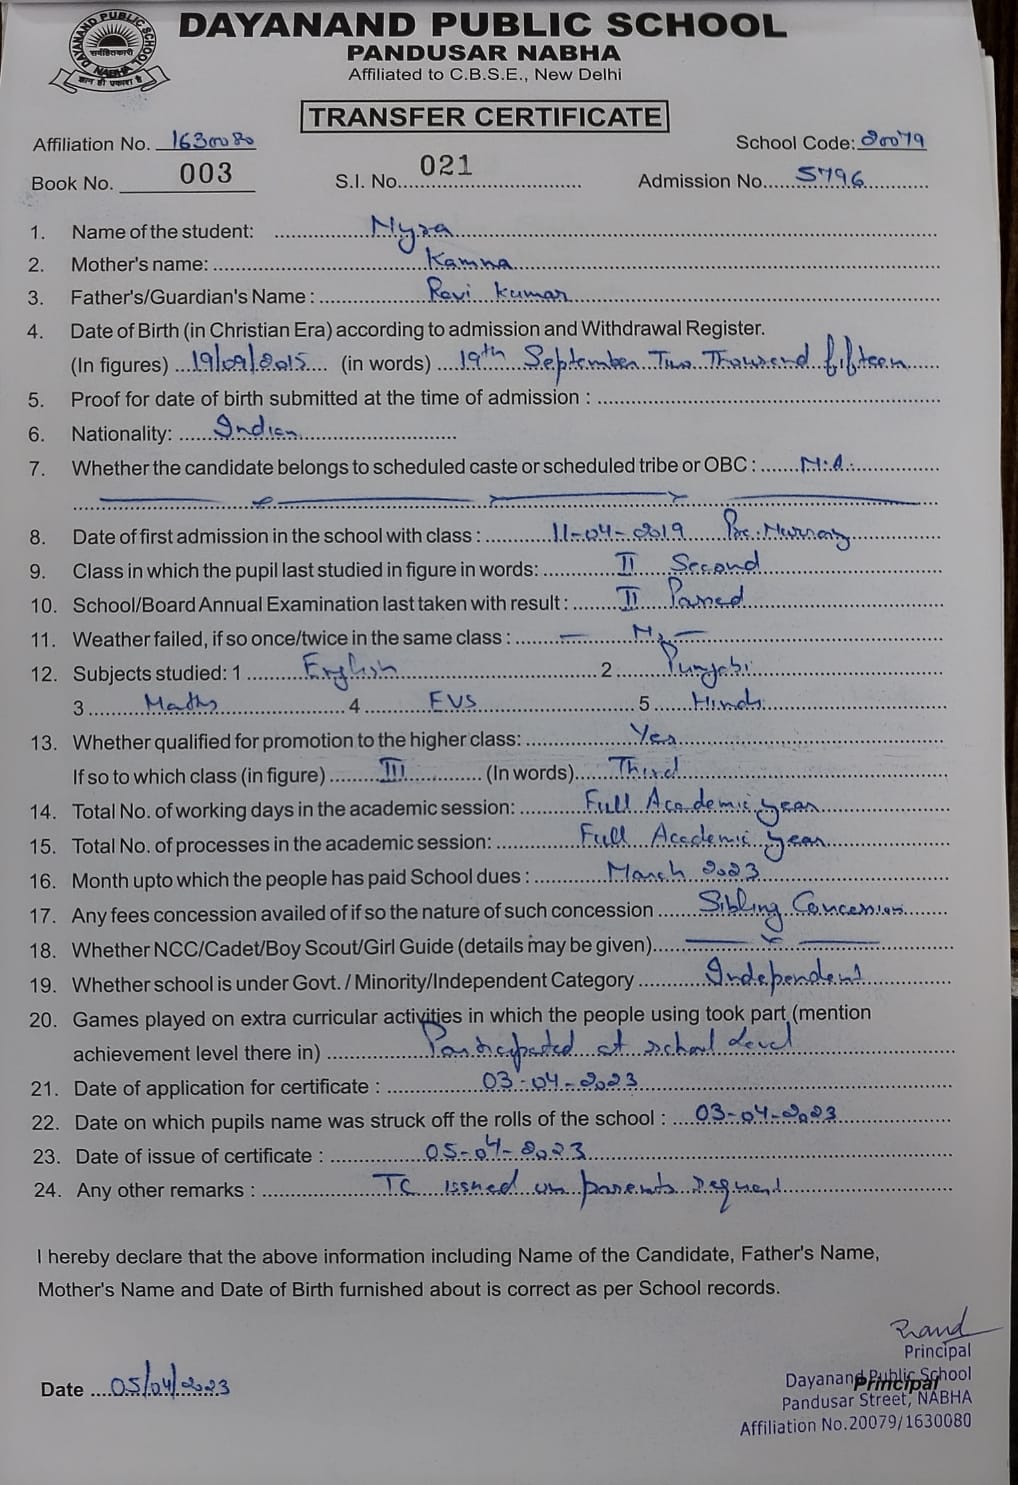 DAYANAND PUBLIC SCHOOL
PANDUSAR NABHA
Affiliated to C.B.S.E., New Delhi
DAYANAND PUBLIC SCHOOL
NABHA
TRANSFER CERTIFICATE
Affiliation No. 1630080 School Code: 20079
Book No. 003 S.I. No. 021 Admission No. 5796
1. Name of the student: Myra
2. Mother's name: Kamna
3. Father's/Guardian's Name : Ravi Kumar
4. Date of Birth (in Christian Era) according to admission and Withdrawal Register.
(In figures) 19/09/2015 (in words) 19th September Two Thousand fifteen
5. Proof for date of birth submitted at the time of admission :
6. Nationality: Indian
7. Whether the candidate belongs to scheduled caste or scheduled tribe or OBC : N.A.
8. Date of first admission in the school with class : 11-04-2019 Pre.Nursray
9. Class in which the pupil last studied in figure in words: II Second
10. School/Board Annual Examination last taken with result : II Passed
11. Weather failed, if so once/twice in the same class :
12. Subjects studied: 1 English 2 Punjabi
3 Maths 4 EVS 5 Hindi
13. Whether qualified for promotion to the higher class: Yes
If so to which class (in figure) III (In words) Third
14. Total No. of working days in the academic session: Full Academic year
15. Total No. of processes in the academic session: Full Academic year
16. Month upto which the people has paid School dues : March 2023
17. Any fees concession availed of if so the nature of such concession Sibling Concession
18. Whether NCC/Cadet/Boy Scout/Girl Guide (details may be given)
19. Whether school is under Govt. / Minority/Independent Category Independent
20. Games played on extra curricular activities in which the people using took part (mention
achievement level there in) Participated at school Level
21. Date of application for certificate : 03-04-2023
22. Date on which pupils name was struck off the rolls of the school : 03-04-2023
23. Date of issue of certificate : 05-04-2023
24. Any other remarks : TC issued on parents request
I hereby declare that the above information including Name of the Candidate, Father's Name,
Mother's Name and Date of Birth furnished about is correct as per School records.
Principal
Date 05/04/2023
Dayanand Public School
Principal
Pandusar Street, NABHA
Affiliation No.20079/1630080